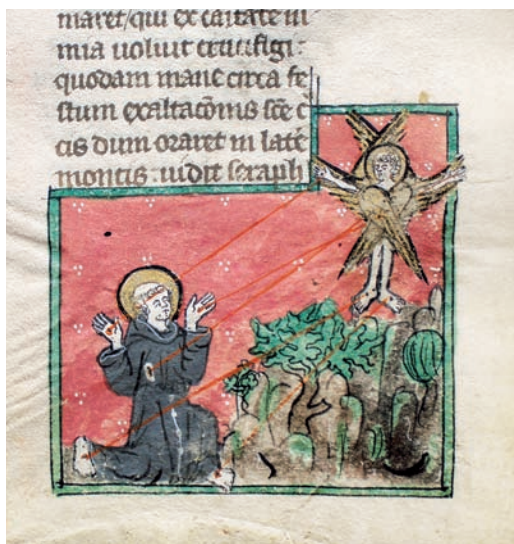 maret/qui ex caritate ni
mia uoluit crucifigi:
quodam mane circa fe
stum exaltacōnis scē c
cis dum oraret in late
montis: uidit seraph